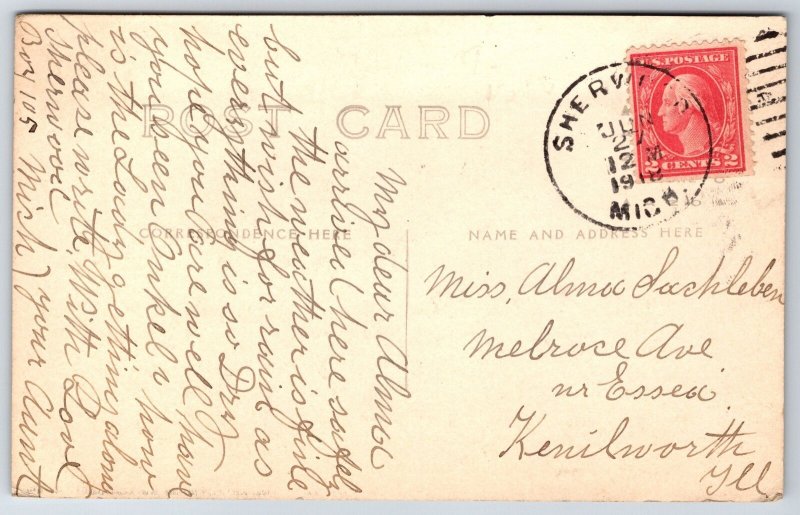 POST CARD
CORRESPONDENCE HERE
NAME AND ADDRESS HERE
U.S. POSTAGE
2 CENTS 2
SHERWOOD
JUN
27
12 M
1918
MICH.
My dear Alma
arrived here safely
the weather is fine
but wish for rain as
everything is so Dry
hope you are well I have
you been Onkel & how
is the Lady getting along
please write, With Love
Sherwood your Aunt
Box 105 Mich)
Miss, Alma Sachleben
Melrose Ave
nr Essex
Kenilworth
Ill